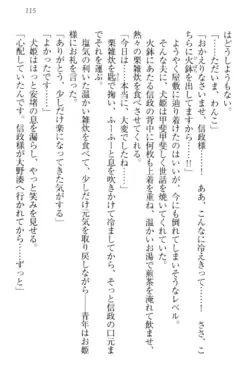 115
はどうしようもない。
「……ただいま、わんこ」
「おかえりなさいませ、信政様。ああ、こんなに冷えきって……！　ささ、こ
ちらに火鉢を出してございます……！」
ようやく屋敷に辿り着けたのはいいが、このままでは凍えてしまいそうなレベル。
そんな夫に、犬姫は甲斐甲斐しく世話を焼いてくれた。
火鉢にあたる信政の背中に何枚も上着を重ね、温かいお湯で煎茶を淹れて飲ませ、
熱々の栗雑炊を作り……。
「今日は本当に、大変でしたね……。ささ、信政様」
栗雑炊を匙ですくい、ふーふーと息を吹きかけて冷ますと、そっと信政の口元ま
でそれを運ぶ。
塩気の利いた温かい雑炊に、少しだけ元気を取り戻しながら――青年はお姫
様にお礼を言う。
「ありがとう。少しだけ楽になってきた気がする」
「よかったです……」
犬姫はほっと安堵の息を漏らし、やっと笑みを見せる。
「心配していたんです。信政様が大野湊へ行かれてから……ずっと」